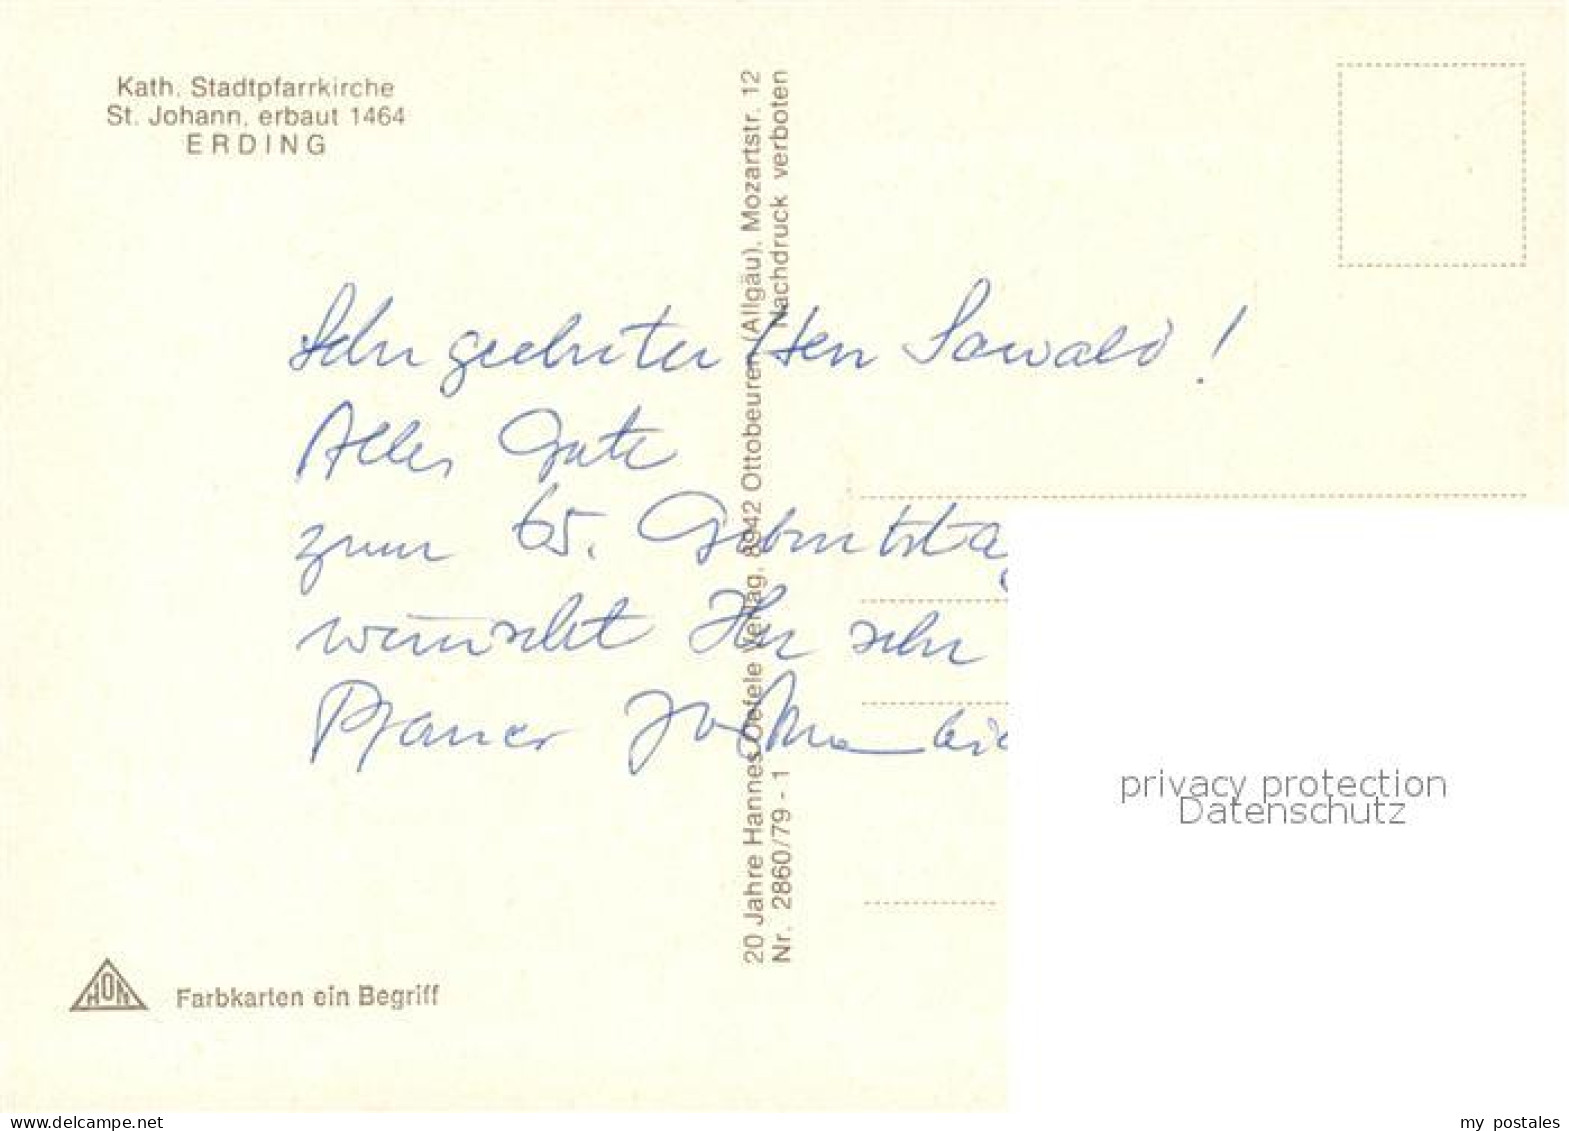 Kath. Stadtpfarrkirche
St. Johann, erbaut 1464
ERDING
20 Jahre Hannes Oefele Verlag, 8942 Ottobeuren (Allgäu), Mozartstr. 12
Nr. 2860/79 - 1 Nachdruck verboten
Sehr geehrter Herr !
Alles Gute
zum 65. Geburtstag
wünscht Ihr sehr
Pfarrer
privacy protection
Datenschutz
HON
Farbkarten ein Begriff
delcampe.net
my_postales